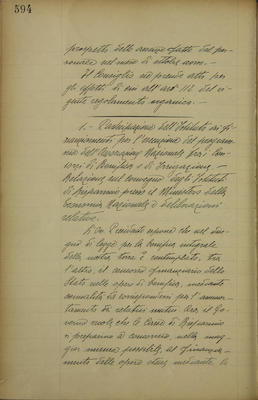 594
prospetto delle somme
nel mese di ottobre
Il Consiglio ne prende atto per
gli effetti di cui all'art. 112 del vi-
gente regolamento organico. —
1. - Partecipazione dell'Istituto ai fi-
nanziamenti per l'esecuzione del programma
dell'Associazione Nazionale fra i Con-
sorzi di Bonifica e di Irrigazione -
Relazione sul convegno degli Istituti
di Risparmio presso il Ministero della
Economia Nazionale e deliberazioni
relative.
Il Presidente espone che nel
di legge per la bonifica integrale
della nostra terra è contemplato, tra
l'altro, il concorso finanziario dello
Stato nelle opere di bonifica, mediante
annualità da corrispondersi per l'ammor-
tamento dei relativi mutui. Ora il Go-
verno vuole che le Casse di Risparmio
si preparino a concorrere, nella mag-
gior misura possibile, al finanzia-
mento delle opere stesse mediante la